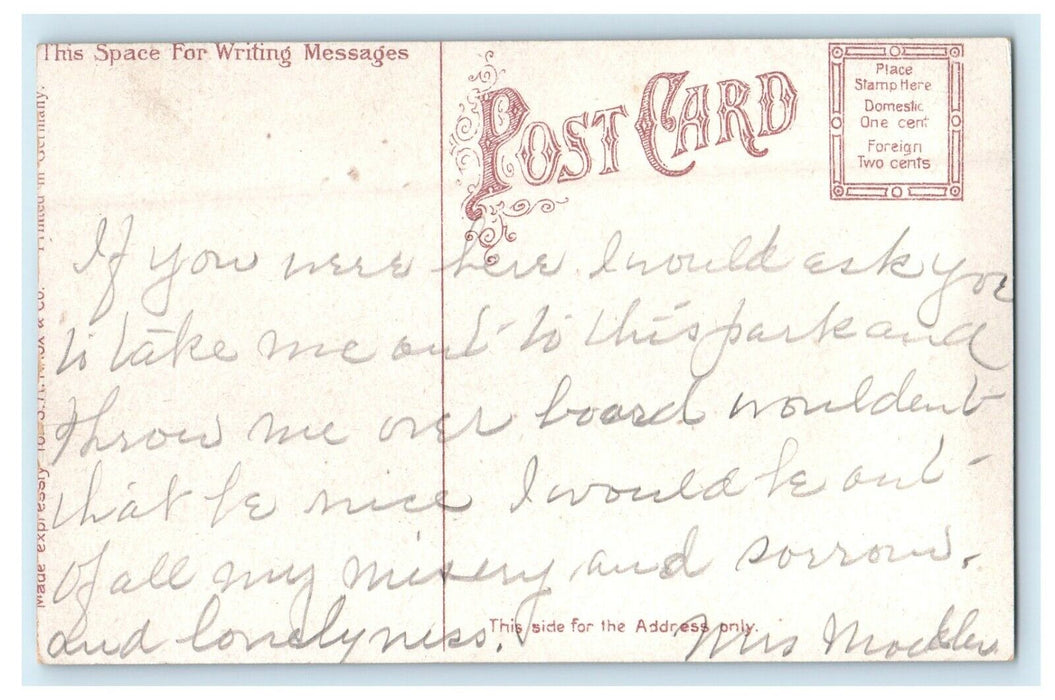 This Space For Writing Messages
POST CARD
Place
Stamp Here
Domestic
One cent
Foreign
Two cents
Printed in Germany.
Made expressly for S.H. & Co.
If you were here I would ask you
to take me out to this park and
throw me over board wouldent
that be nice I would be out
of all my misery and sorrow.
and lonelyness.
This side for the Address only.
Mrs